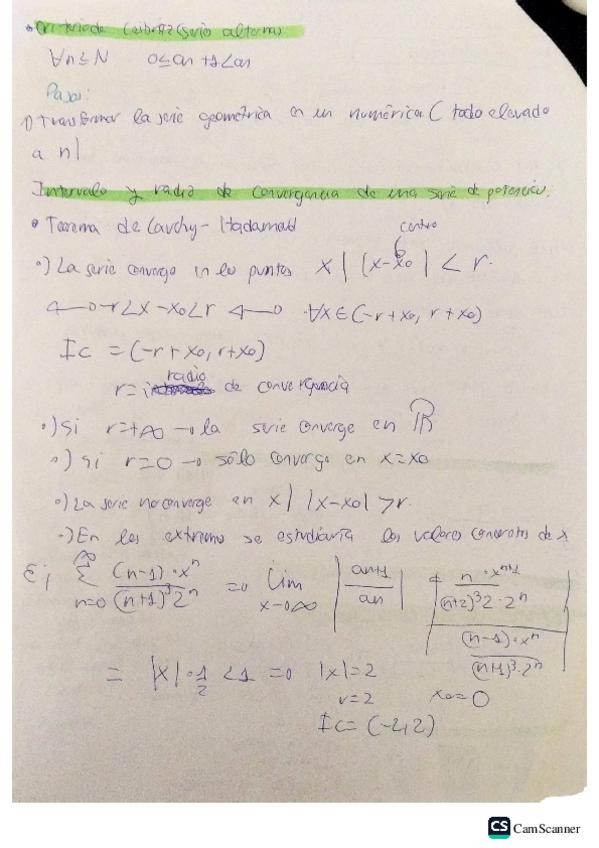 • Criterio de Leibnitz (serie alterna)
∀n ≤ N 0 ≤ an +1 < an
Pasos:
1) Transformar la serie geométrica en un numérica ( todo elevado
a n|
Intervalo y radio de convergencia de una serie de potencias.
• Teorema de Cauchy-Hadamard
centro
°) La serie converge en los puntos x | |x-x0| < r.
⟷ -r < x-x0 < r ⟷ ∀x ∈ (-r+x0, r+x0)
Ic = (-r+x0, r+x0)
radio
r= de convergencia
°) Si r=+∞ → la serie converge en ℝ
°) si r=0 → sólo converge en x=x0
°) La serie no converge en x | |x-x0| > r.
°) En los extremos se estudiaría los valores concretos de x
Ej ∑ n=0 ∞ (n-1)·x^n / (n+1)^3 2^n => lim x→∞ | an+1 / an | | n·x^n+1 / (n+2)^3 2·2^n / (n-1)·x^n / (n+1)^3·2^n |
= |x|·1/2 < 1 => |x|=2
r=2 x0=0
Ic= (-2,2)
CS CamScanner